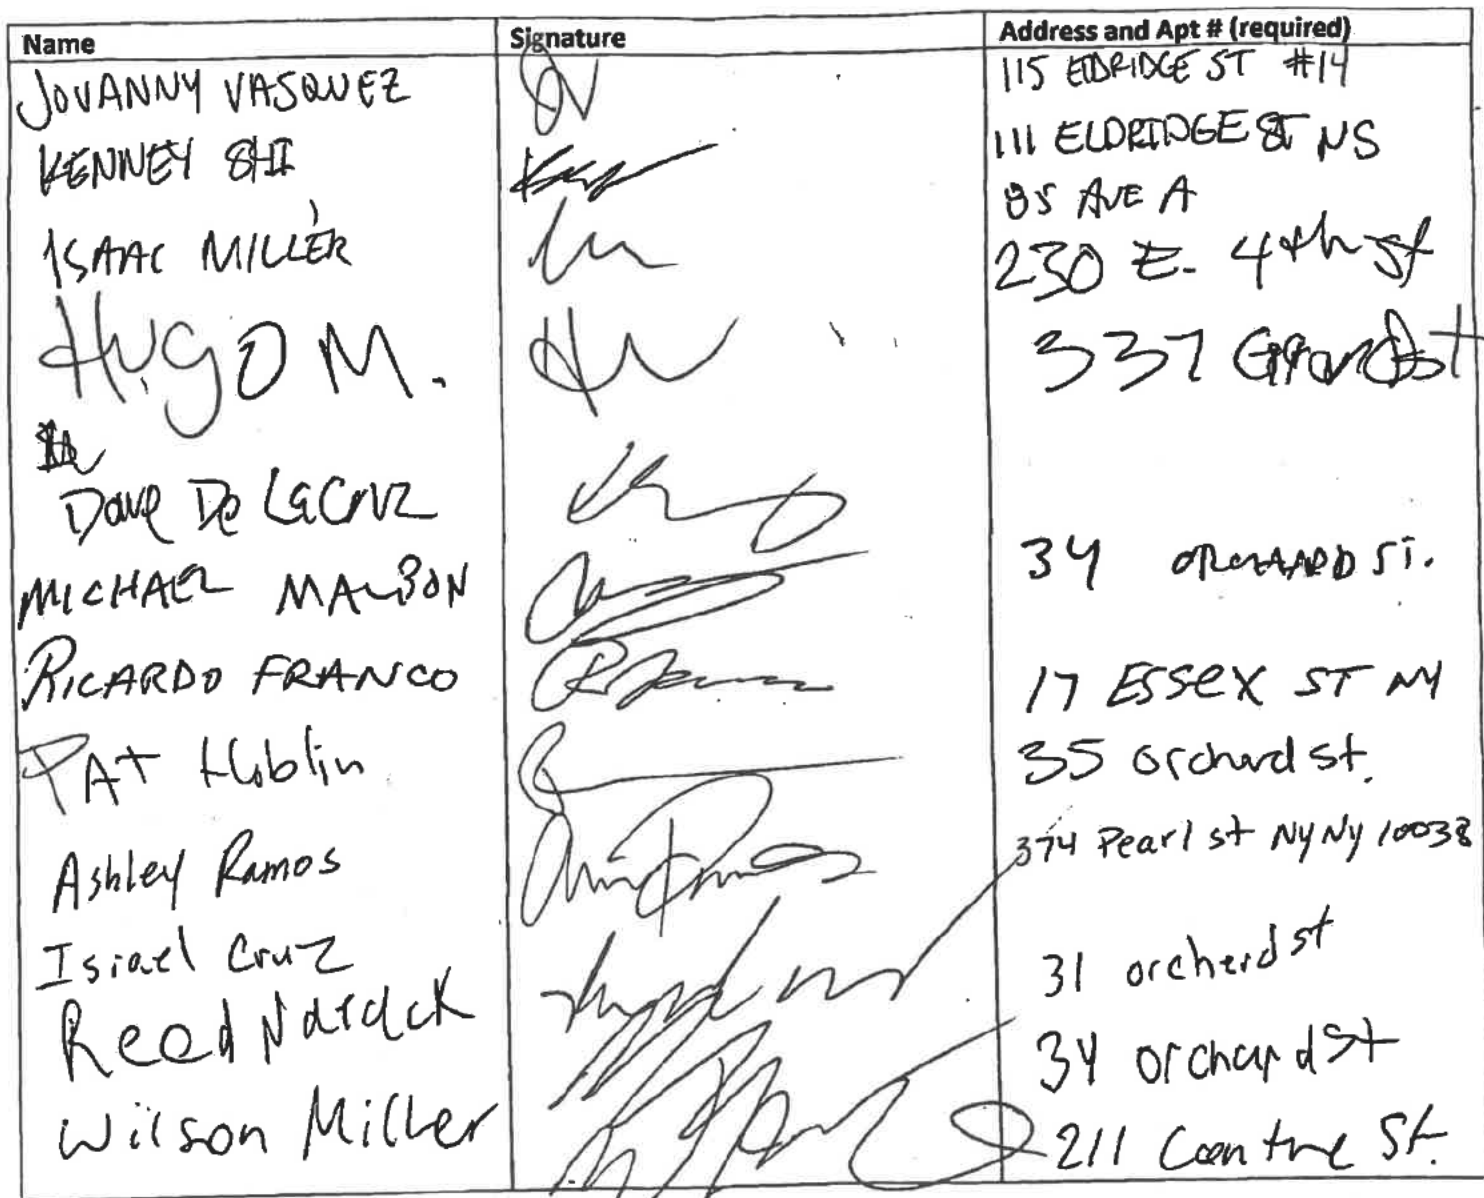 Name Signature Address and Apt # (required)
JOVANNY VASQUEZ 115 ELDRIDGE ST #14
KENNEY SHI 111 ELDRIDGE ST NS
85 AVE A
ISAAC MILLER 230 E. 4th st
HUgO M. 337 Grand St
Dave De La Cruz
MICHAEL MALBON 34 ORCHARD ST.
RICARDO FRANCO 17 ESSEX ST NY
PAT 35 orchard st.
Ashley Ramos 374 Pearl st Ny Ny 10038
Israel Cruz 31 orcherd st
Reed 34 orchard st
Wilson Miller 211 Centre St.